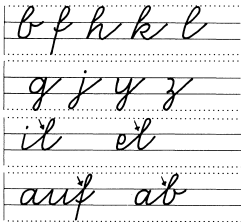 b f h k l
g j y z
il el
auf ab